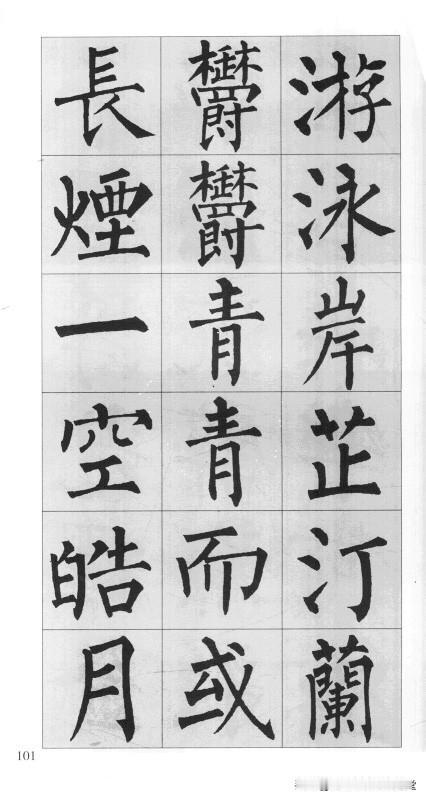 游泳岸芷汀蘭
欝欝青青而或
長煙一空皓月
101